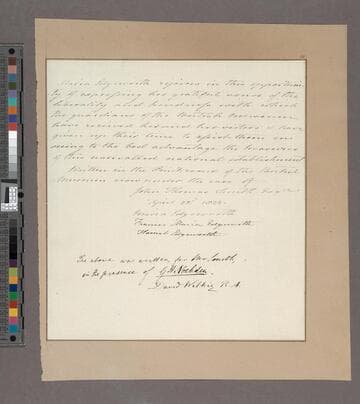 Maria Edgeworth rejoices in this opportunity
of expressing her grateful sense of the
liberality and kindness with which
the guardians of the British Museum
have received her and her sisters & have
given up their time to assist them in
seeing to the best advantage the treasures
of this unrivalled national establishment
Written in the Print room of the British
Museum now under the care of
John Thomas Smith Esqre
April 1822
Maria Edgeworth
Frances Maria Edgeworth
Harriet Edgeworth
The above was written for Mr. Smith,
in the presence of G. H. Noehden.
David Wilkie R.A.